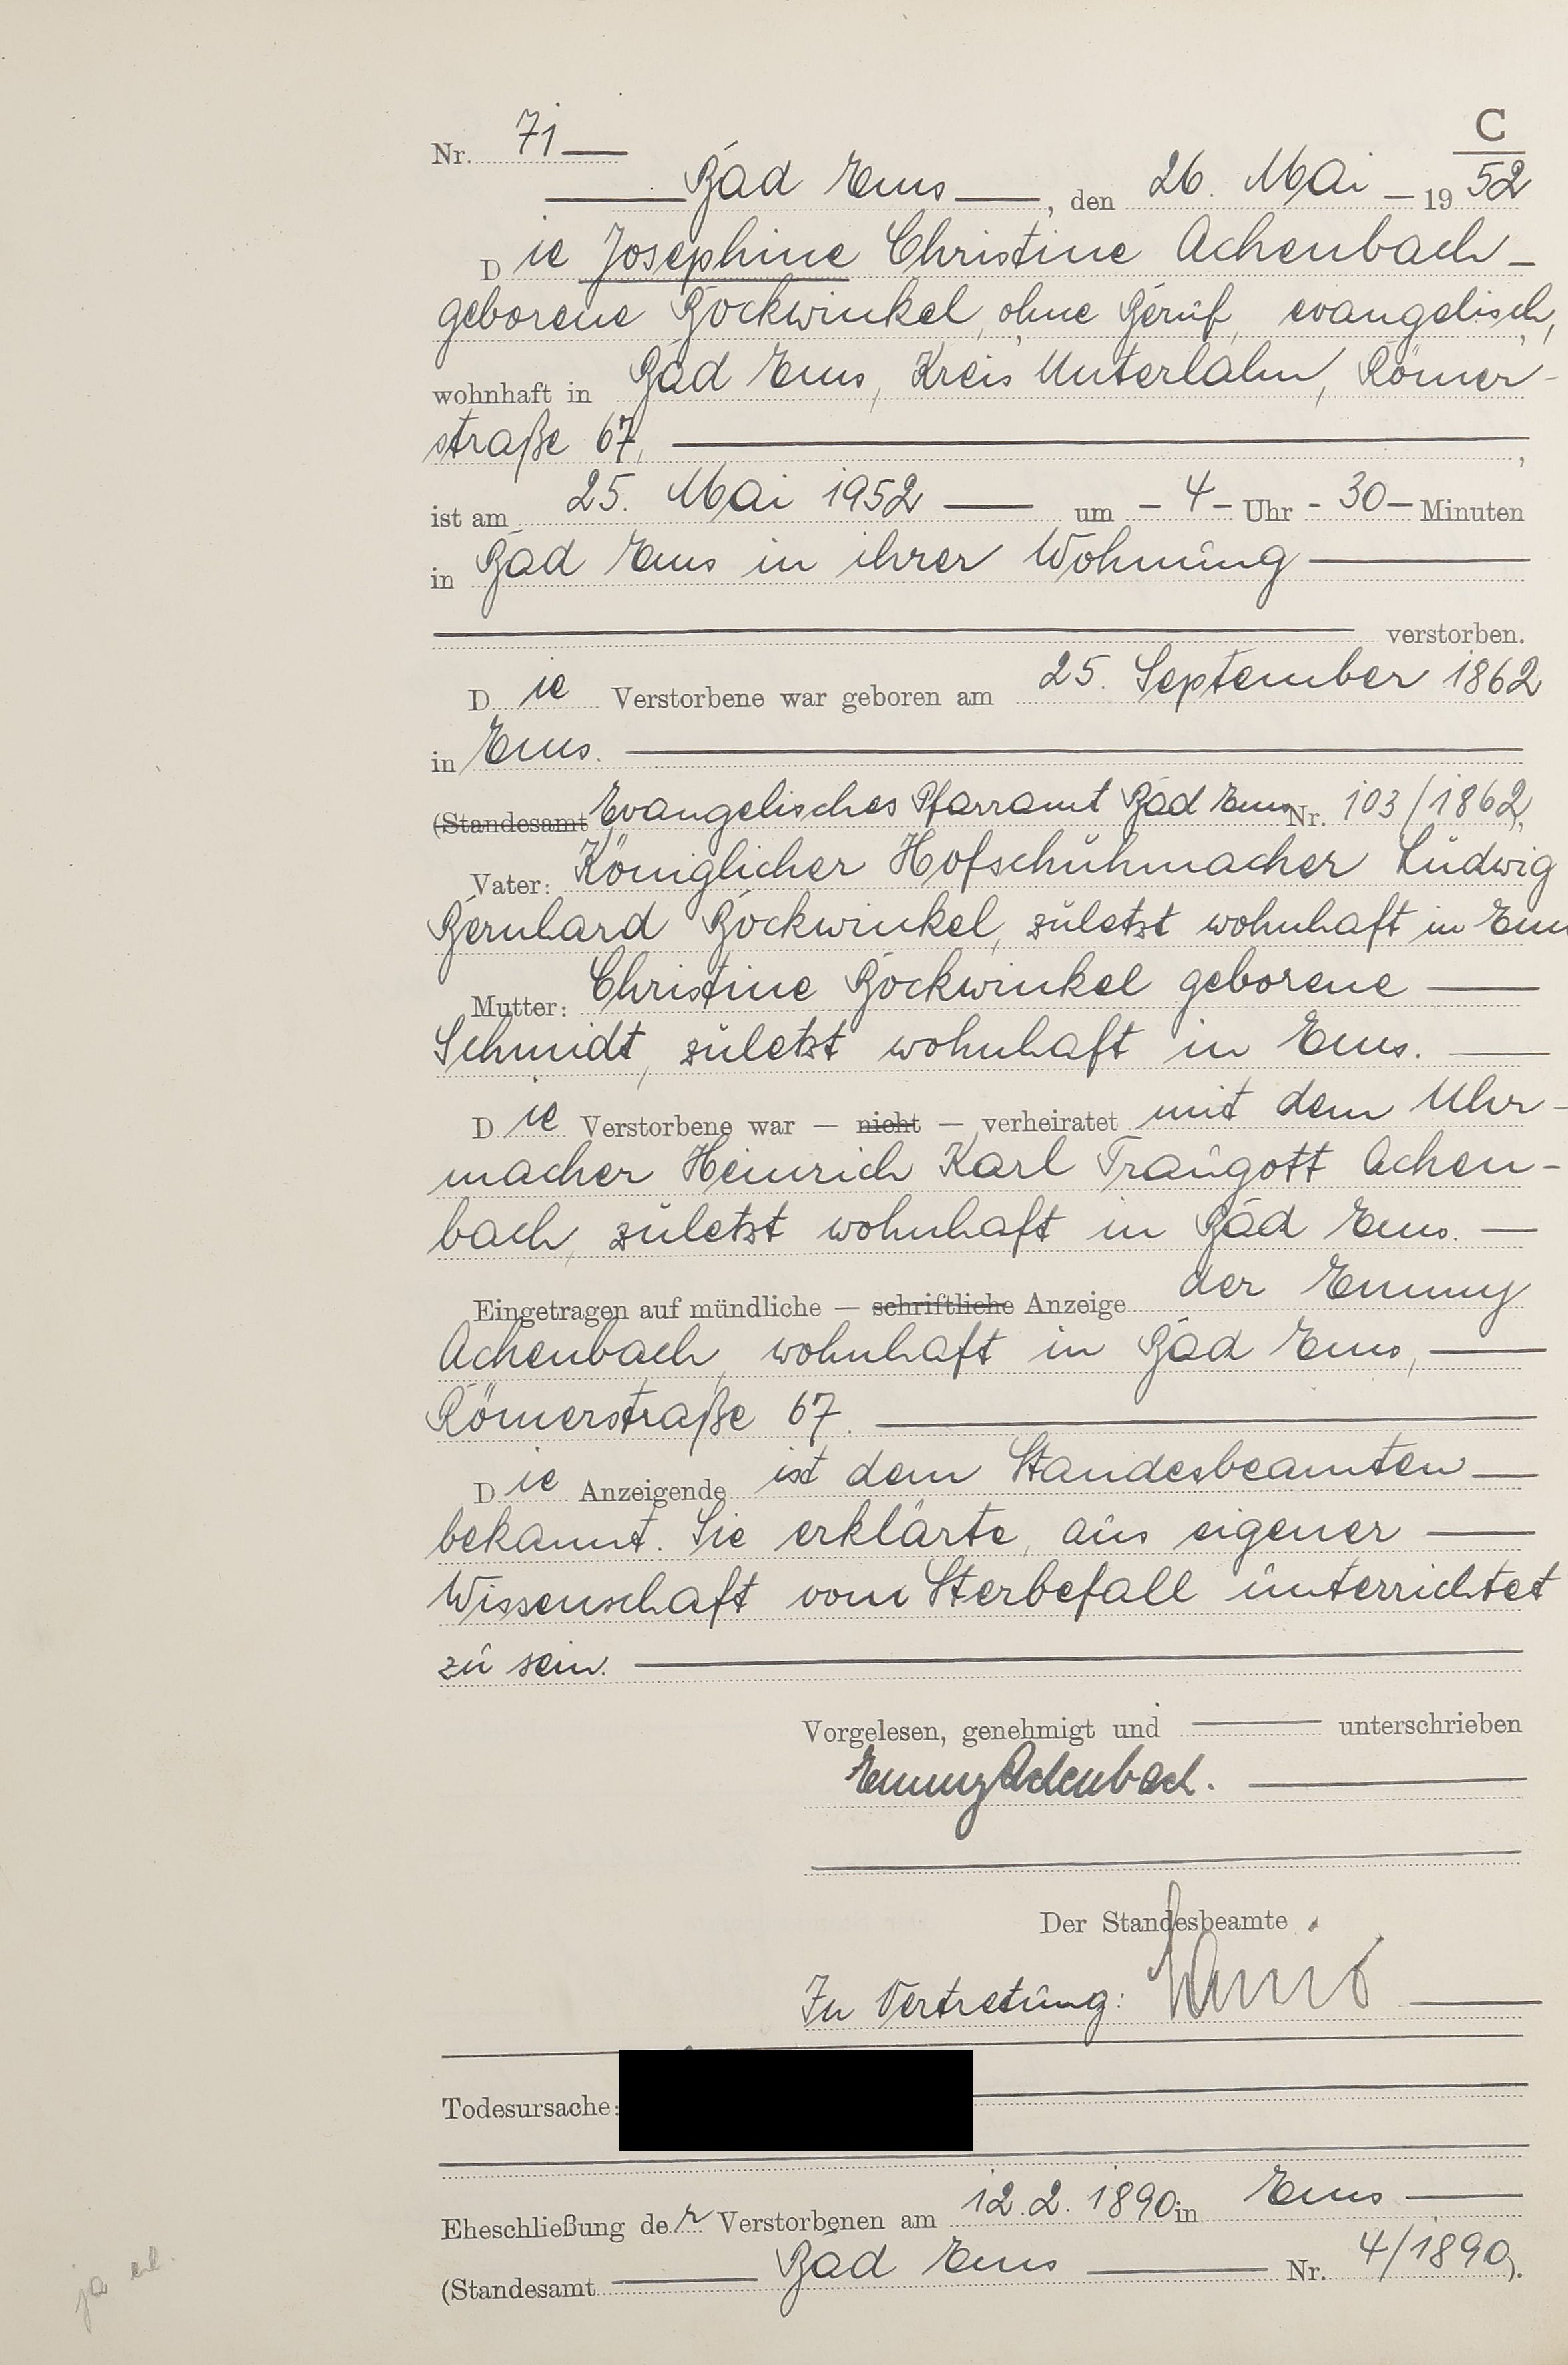 C
Nr. 71
Bad Ems, den 26. Mai 1952
Die Josephine Christine Achenbach
geborene Bockwinkel, ohne Beruf, evangelisch,
wohnhaft in Bad Ems, Kreis Unterlahn, Römer-
straße 67,
ist am 25. Mai 1952 um - 4 - Uhr - 30 - Minuten
in Bad Ems in ihrer Wohnung
verstorben.
Die Verstorbene war geboren am 25. September 1862
in Ems.
(Standesamt Evangelisches Pfarramt Bad Ems Nr. 103/1862),
Vater: Königlicher Hofschuhmacher Ludwig
Bernhard Bockwinkel, zuletzt wohnhaft in Em
Mutter: Christine Bockwinkel geborene
Schmidt, zuletzt wohnhaft in Ems.
Die Verstorbene war — nicht — verheiratet mit dem Uhr-
macher Heinrich Karl Traugott Achen-
bach, zuletzt wohnhaft in Bad Ems.
Eingetragen auf mündliche — schriftliche Anzeige der Emmy
Achenbach, wohnhaft in Bad Ems,
Römerstraße 67.
Die Anzeigende ist dem Standesbeamten
bekannt. Sie erklärte, aus eigener
Wissenschaft vom Sterbefall unterrichtet
zu sein.
Vorgelesen, genehmigt und unterschrieben
Emmy Achenbach.
Der Standesbeamte
In Vertretung:
Todesursache:
Eheschließung der Verstorbenen am 12.2.1890 in Ems
(Standesamt Bad Ems Nr. 4/1890).